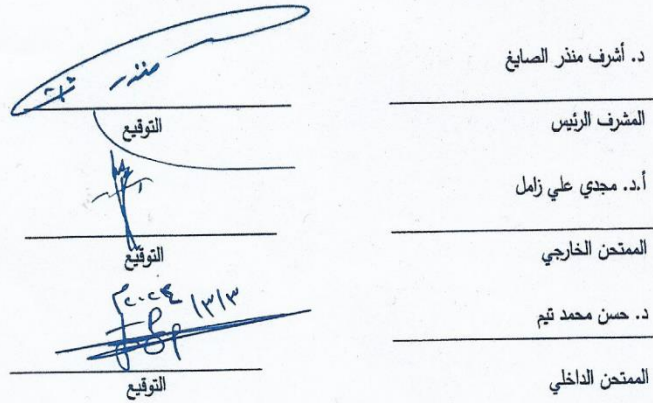 د. أشرف منذر الصايغ
المشرف الرئيس
التوقيع
أ.د. مجدي علي زامل
الممتحن الخارجي
التوقيع
د. حسن محمد تيم
٢٠٢٤/٣/٣
الممتحن الداخلي
التوقيع